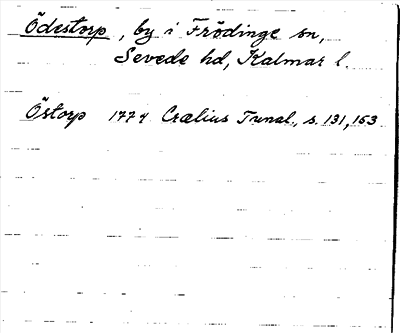 Ödestorp, by i Frödinge sn,
Sevede hd, Kalmar l.
Östorp 1774 Cræelius Tunal., s. 131, 153